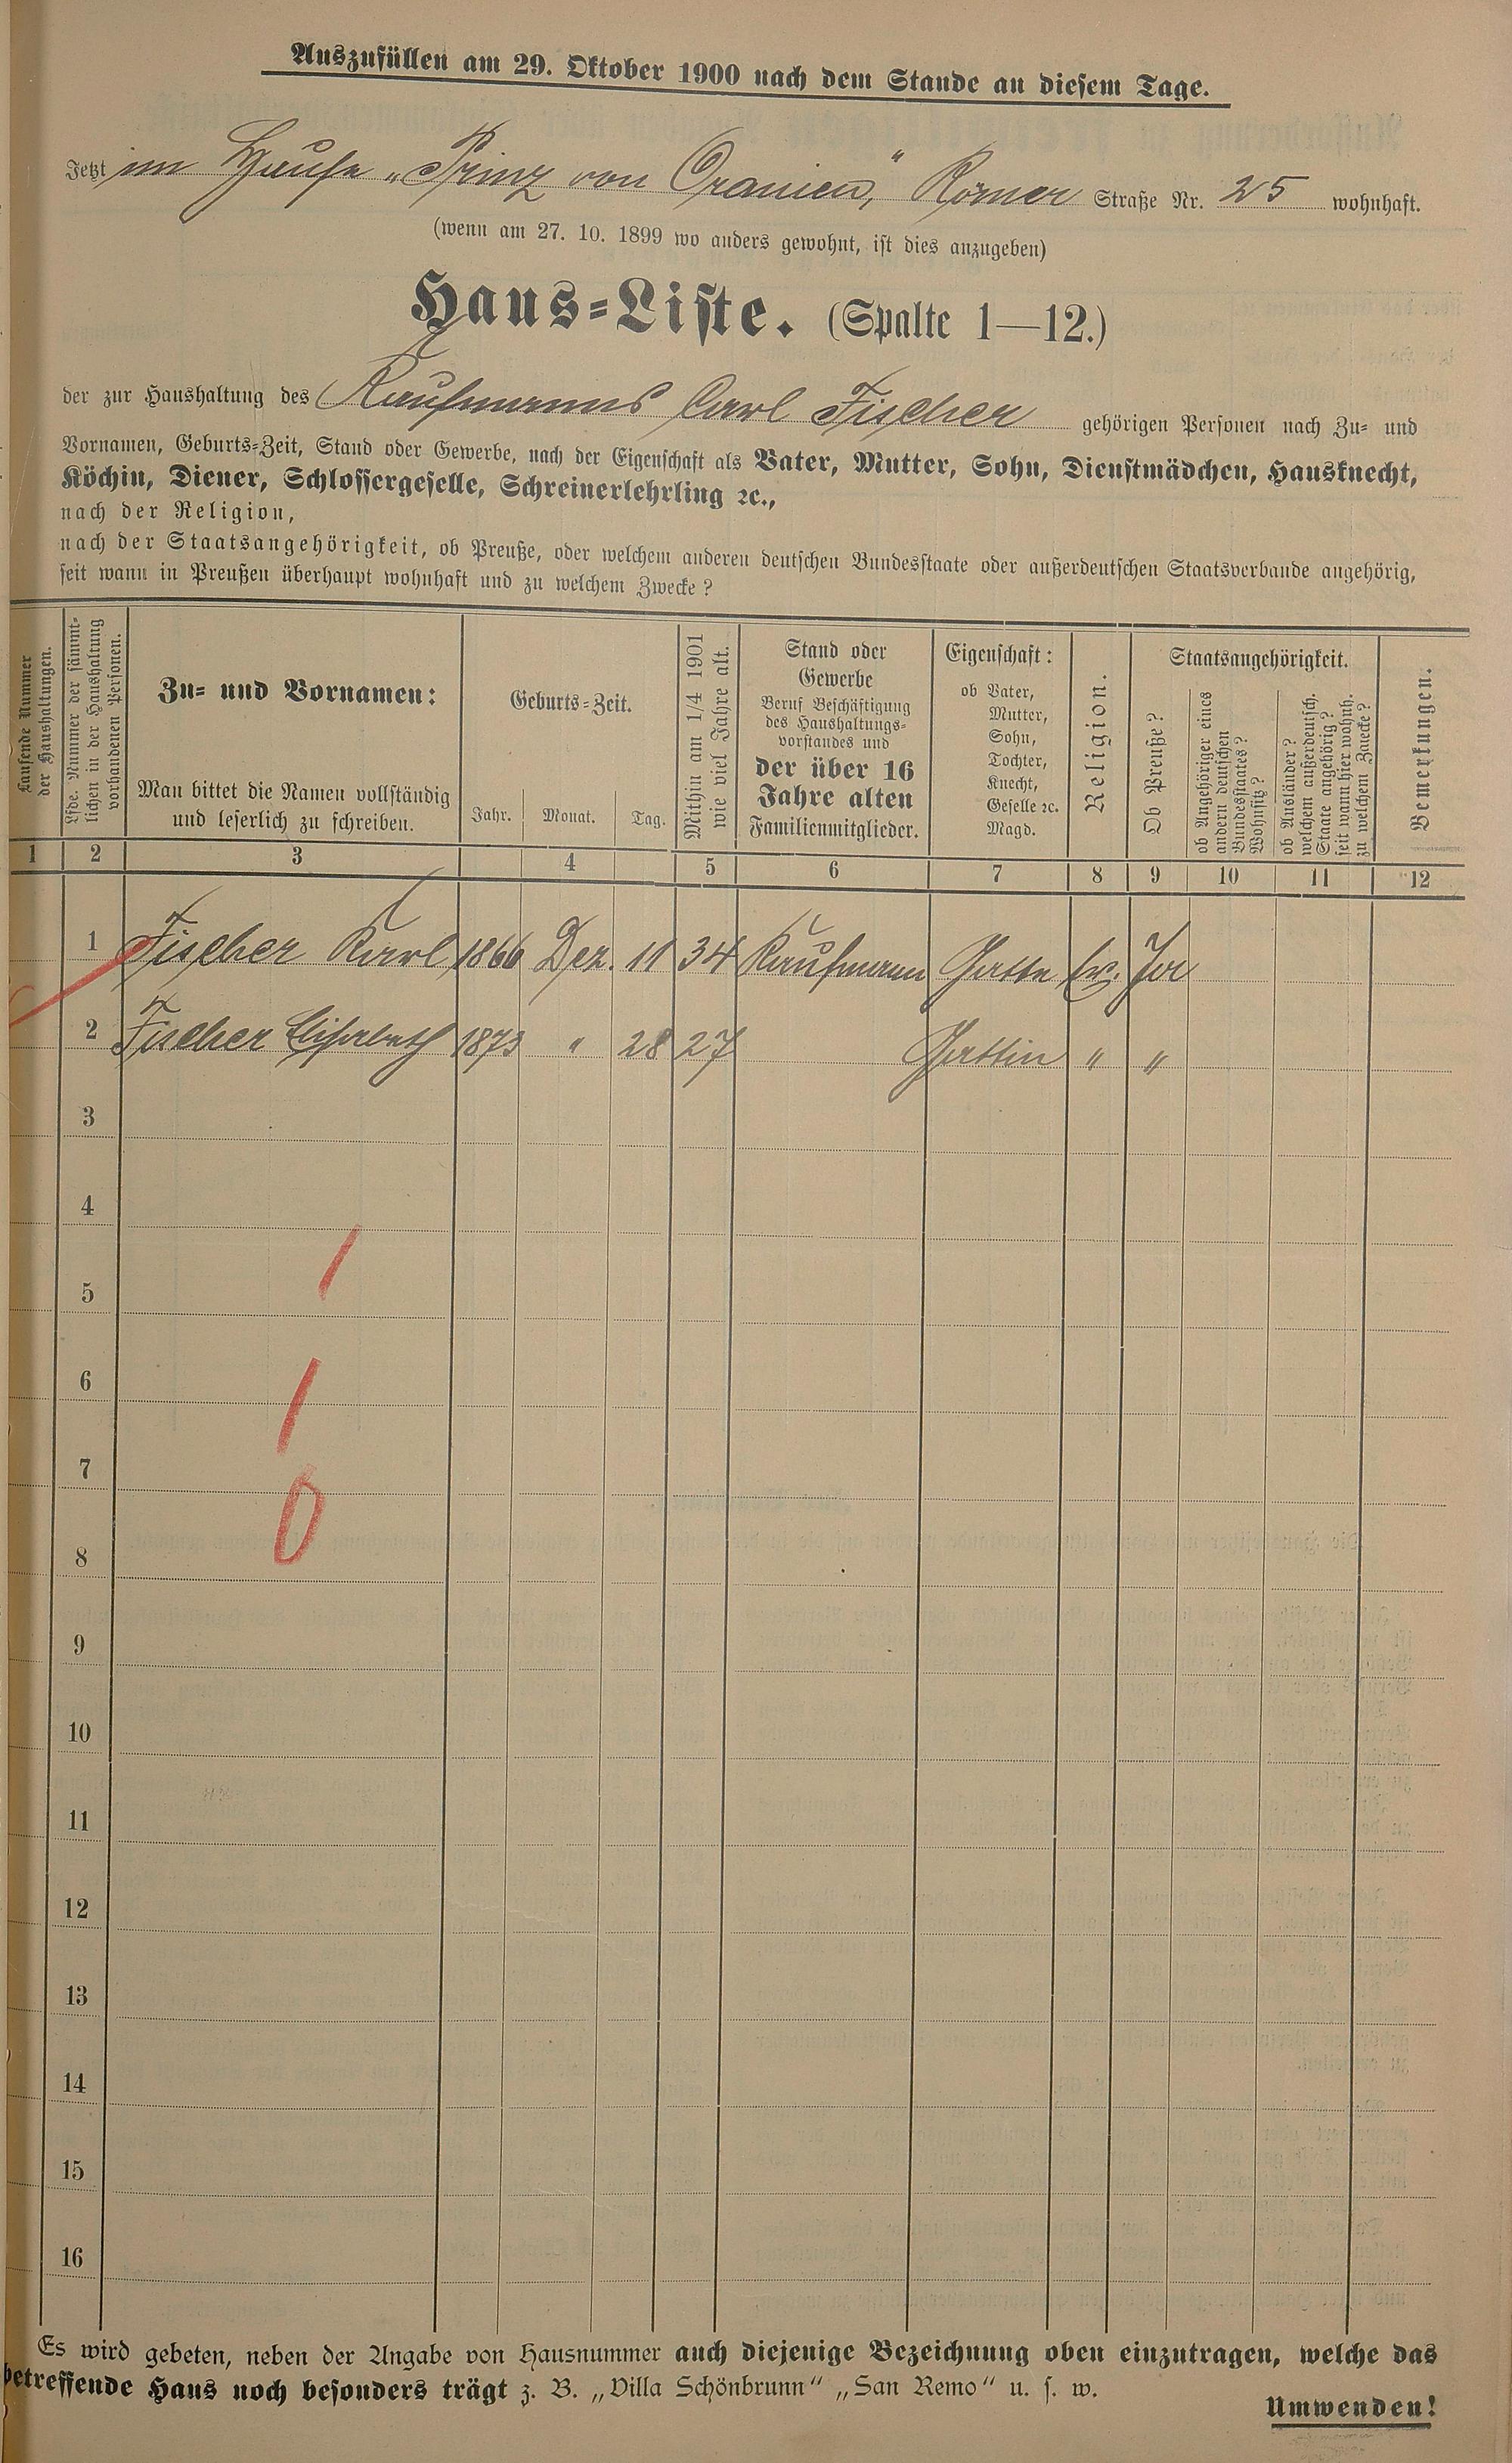 Auszufüllen am 29. Oktober 1900 nach dem Stande an diesem Tage.
Jetzt im Hause „Prinz von Oranien," Römer Straße Nr. 25 wohnhaft.
(wenn am 27. 10. 1899 wo anders gewohnt, ist dies anzugeben)
Haus=Liste. (Spalte 1—12.)
der zur Haushaltung des Kaufmanns Carl Fischer gehörigen Personen nach Zu= und
Vornamen, Geburts=Zeit, Stand oder Gewerbe, nach der Eigenschaft als Vater, Mutter, Sohn, Dienstmädchen, Hausknecht,
Köchin, Diener, Schlossergeselle, Schreinerlehrling ꝛc.,
nach der Religion,
nach der Staatsangehörigkeit, ob Preuße, oder welchem anderen deutschen Bundesstaate oder außerdeutschen Staatsverbande angehörig,
seit wann in Preußen überhaupt wohnhaft und zu welchem Zwecke?
Laufende Nummer
der Haushaltungen.
Lfde. Nummer der sämmt=
lichen in der Haushaltung
vorhandenen Personen.
Zu= und Vornamen:
Man bittet die Namen vollständig
und leserlich zu schreiben.
Geburts=Zeit.
Jahr. Monat. Tag.
Mithin am 1/4 1901
wie viel Jahre alt.
Stand oder
Gewerbe
Beruf Beschäftigung
des Haushaltungs=
vorstandes und
der über 16
Jahre alten
Familienmitglieder.
Eigenschaft:
ob Vater,
Mutter,
Sohn,
Tochter,
Knecht,
Geselle ꝛc.
Magd.
Religion.
Staatsangehörigkeit.
Ob Preuße?
ob Angehöriger eines
andern deutschen
Bundesstaates?
Wohnsitz?
ob Ausländer?
welchem außerdeutsch.
Staate angehörig?
seit wann hier wohnh.
zu welchem Zwecke?
Bemerkungen.
1 2 3 4 5 6 7 8 9 10 11 12
1 Fischer Karl 1866 Dez. 11 34 Kaufmann Gatte Ev. Ja
2 Fischer Elisabeth 1873 " 28 27 Gattin " "
3
4
1
5
6
1
7
0
8
9
10
11
12
13
14
15
16
Es wird gebeten, neben der Angabe von Hausnummer auch diejenige Bezeichnung oben einzutragen, welche das
betreffende Haus noch besonders trägt z. B. „Villa Schönbrunn" „San Remo" u. s. w.
Umwenden!